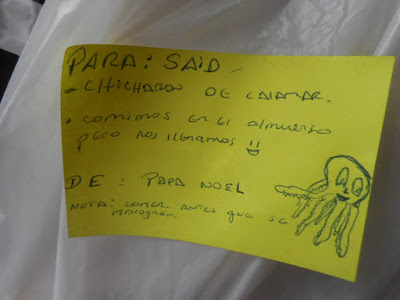 PARA: SAID -
- CHICHARON DE CALAMAR.
• comimos en el almuerzo
pero nos llenamos
DE: PAPA NOEL
NOTA: comer antes que se
malogren.